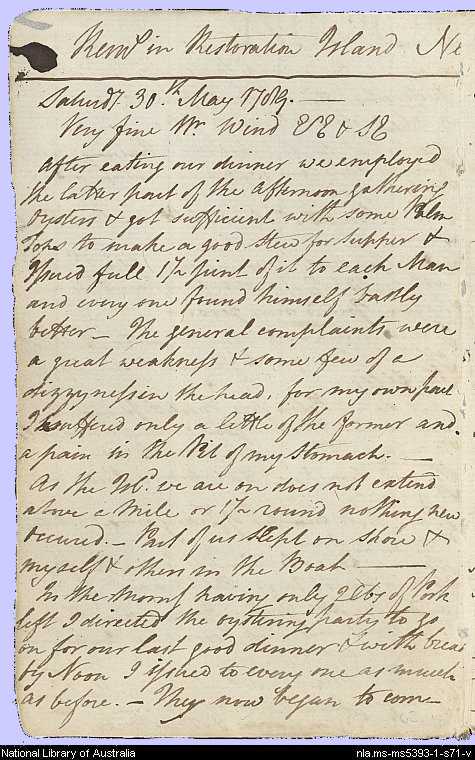 Remks in Restoration Island Ne
Saturdy 30th May 1789. —
Very fine Wr Wind ESE & SE
After eating our dinner we employed
the latter part of the Afternoon gathering
Oysters & got sufficient with some Palm
Tops to make a good Stew for Supper &
Issued full 1½ pint of it to each Man
and every one found himself vastly
better — The general complaints were
a great weakness & some few of a
dizzyness in the head, for my own part
I suffered only a little of the former and
a pain in the Pit of my Stomach. —
As the Isld we are on does not extend
above a Mile or 1½ round nothing new
occured. — Part of us Slept on Shore &
myself & others in the Boat —
In the Morng having only 2 lbs of Pork
left I directed the oystering party to go
on for our last good dinner & with bread
by Noon I issued to every one as much
as before. — They now began to com-
National Library of Australia
nla.ms-ms5393-1-s71-v